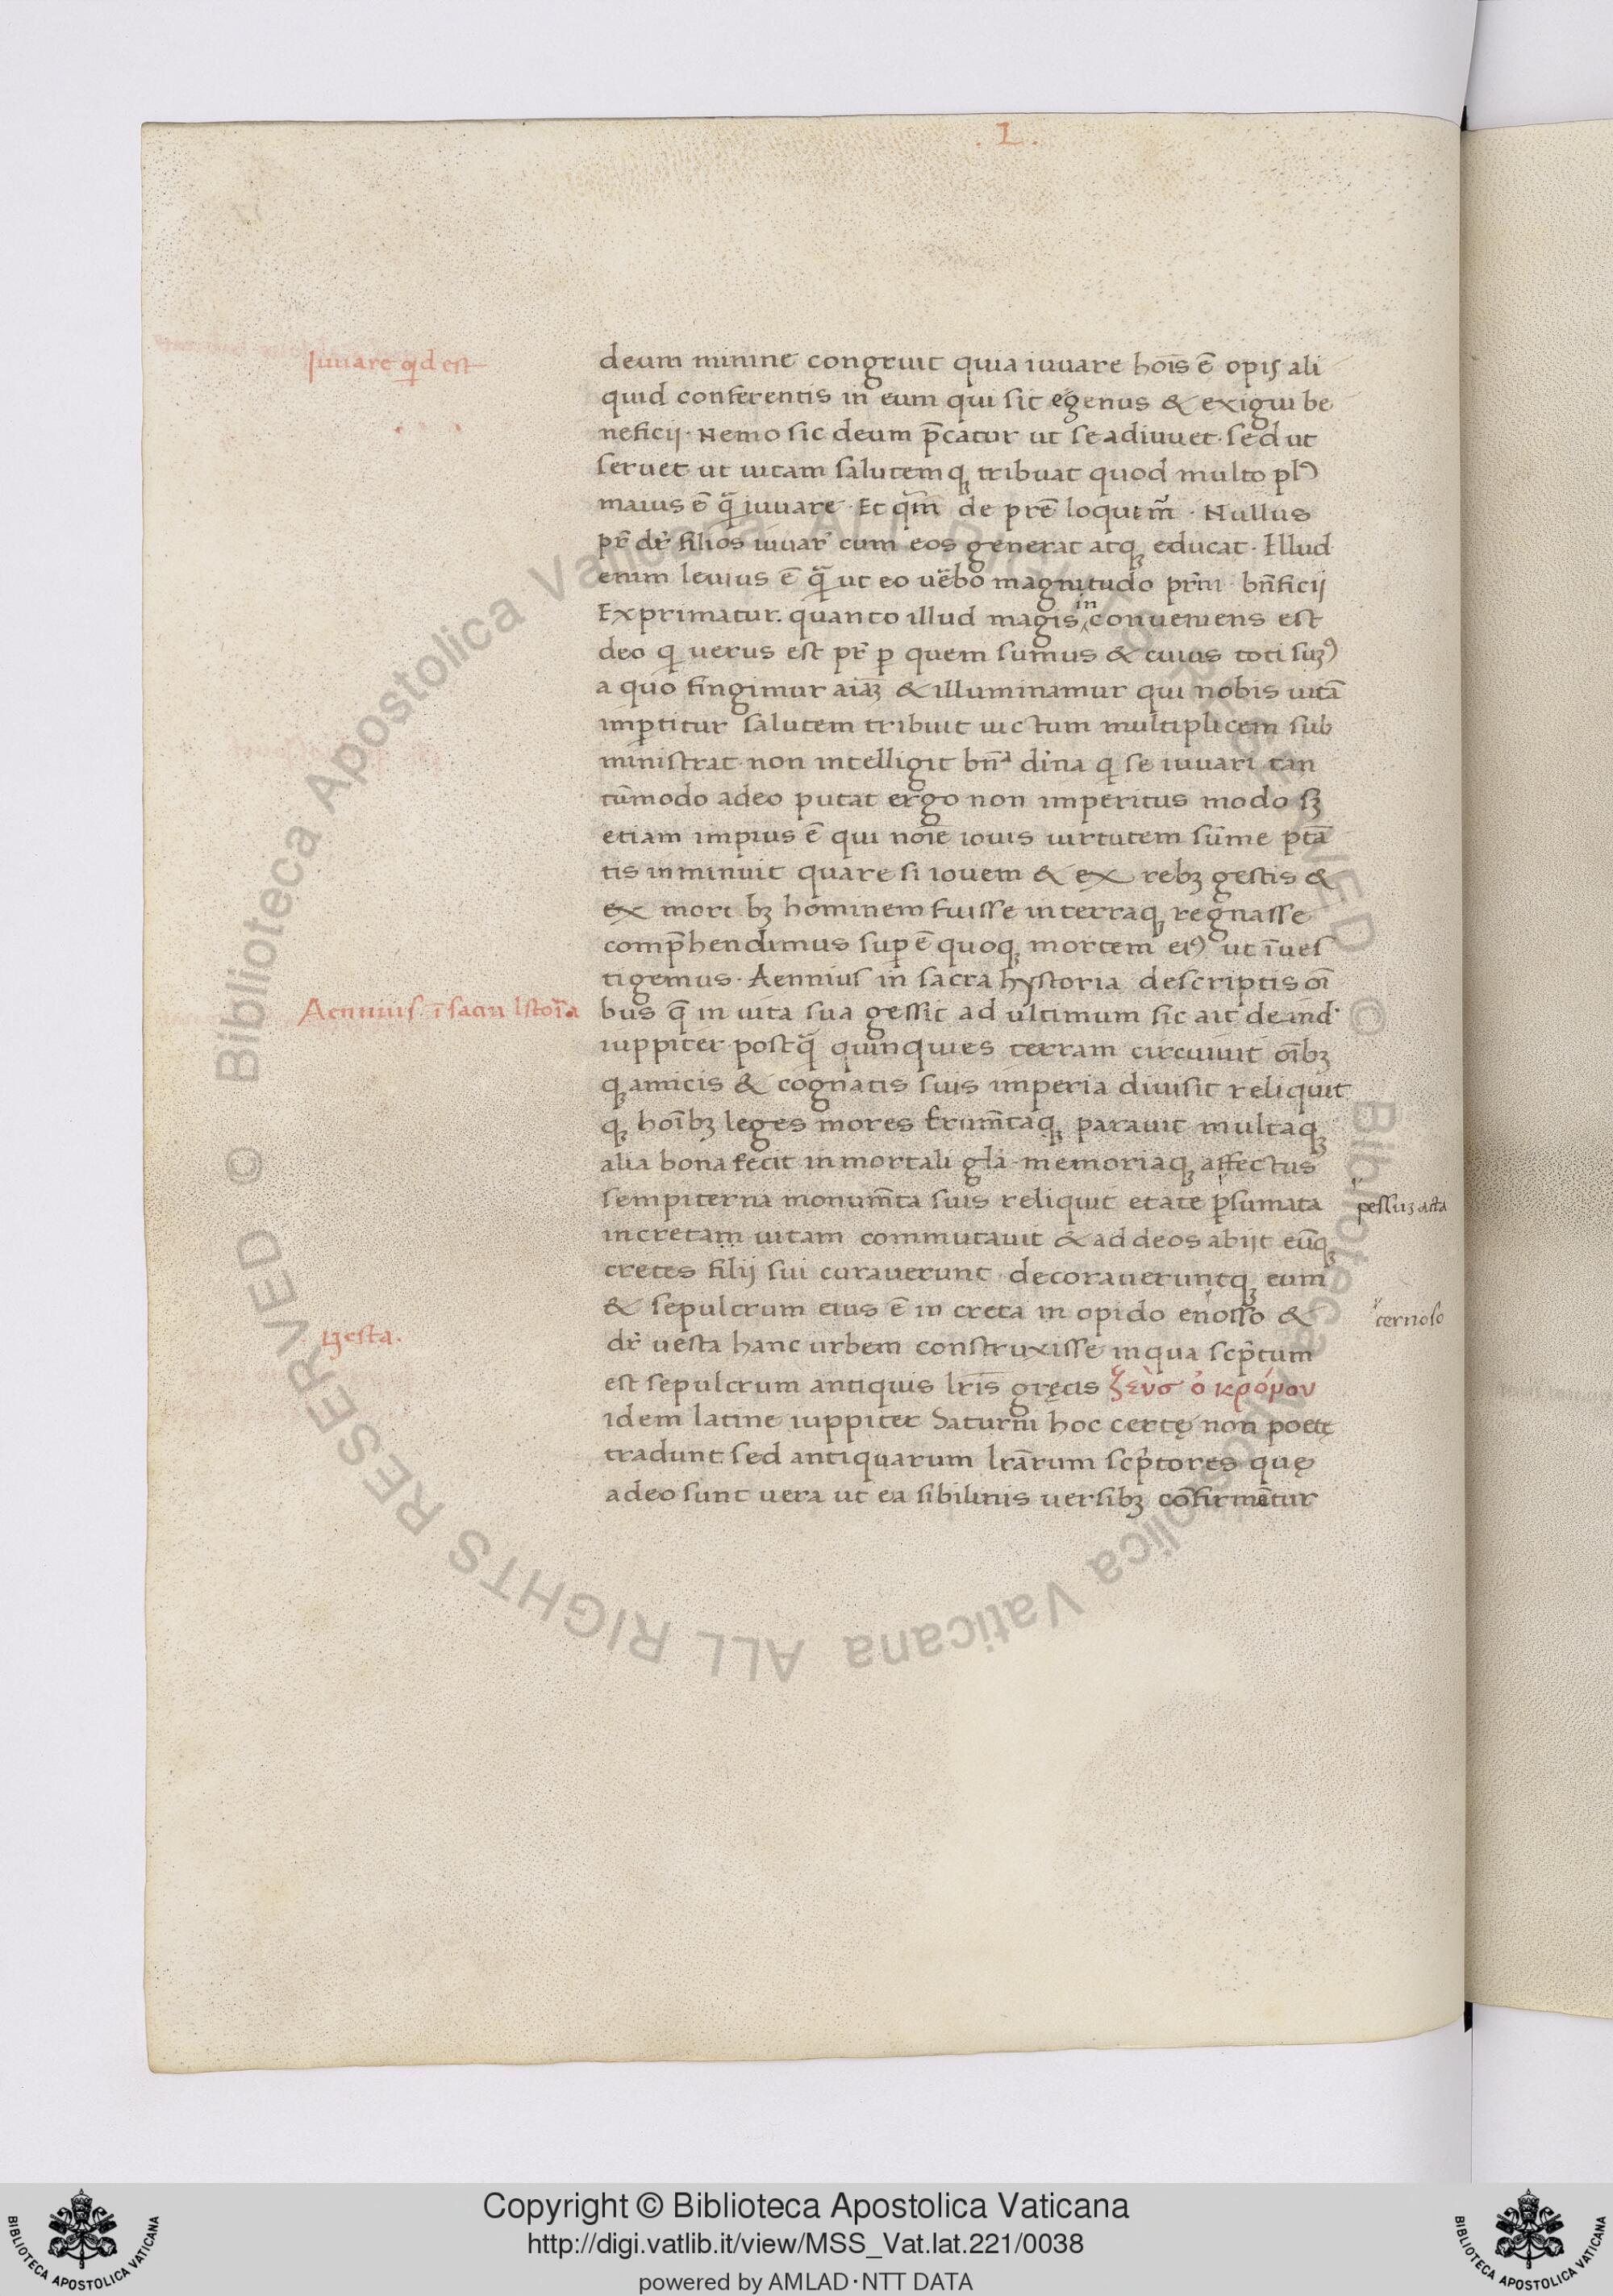 . L .
Iuuare qd est
deum minime congruit quia iuuare hoīs ē opis ali
quid conferentis in eum qui sit egenus & exigui be
neficij · Nemo sic deum p̄catur ut se adiuuet · sed ut
seruet ut uitam salutemq; tribuat quod multo pl⁹
maius ē q̄ iuuare · Et qm̄ de pre̅ loquim̄ · Nullus
pr̄ dr̄ filios iuuar̄ cum eos generat atq; educat · Illud
enim leuius ē q̄ ut eo uerbo magnitudo pr̄ni bn̄ficij
Exprimatur . quanto illud magis inconueniens est
deo q uerus est pr̄ p quem sumus & cuius toti sum⁹
a quo fingimur aiam̄ & illuminamur qui nobis uitā
imptitur salutem tribuit uictum multiplicem sub
ministrat · non intelligit bn̄ᵃ diīna q se iuuari tan
tūmodo adeo putat ergo non imperitus modo sȝ
etiam impius ē qui noīe iouis uirtutem sūme ptā
tis inminuit quare si iouem & ex rebȝ gestis &
ex moribȝ hominem fuisse interraq; regnasse
comp̄hendimus sup ē quoq; mortem ei⁹ ut īues
tigemus · Aennius in sacra hystoria descriptis oī
Aennius ī sacra hstoria
bus q̄ in uita sua gessit ad ultimum sic ait deind·
iuppiter postq̄ quinquies terram circuiuit oībȝ
q; amicis & cognatis suis imperia diuisit reliquit
q; hoībȝ leges mores frum̄taq; parauit multaq;
alia bona fecit inmortali gla̅ · memoriaq; affectus
sempiterna monum̄ta suis reliquit etate psumata
pessuȝ acta
incretam uitam commutauit & ad deos abijt eūq;
cretes filij sui curauerunt · decoraueruntq; eum
& sepulcrum eius ē in creta in opido enosso &
cernoso
uesta.
dr̄ uesta hanc urbem construxisse inqua scp̄tum
est sepulcrum antiquis lr̄is gręcis ζεὺσ ὁ κρόνου
idem latine iuppiter Saturni hoc certę non poetę
tradunt sed antiquarum lrārum scp̄tores quę
adeo sunt uera ut ea sibilinis uersibȝ confirmētur
Copyright © Biblioteca Apostolica Vaticana
http://digi.vatlib.it/view/MSS_Vat.lat.221/0038
powered by AMLAD·NTT DATA